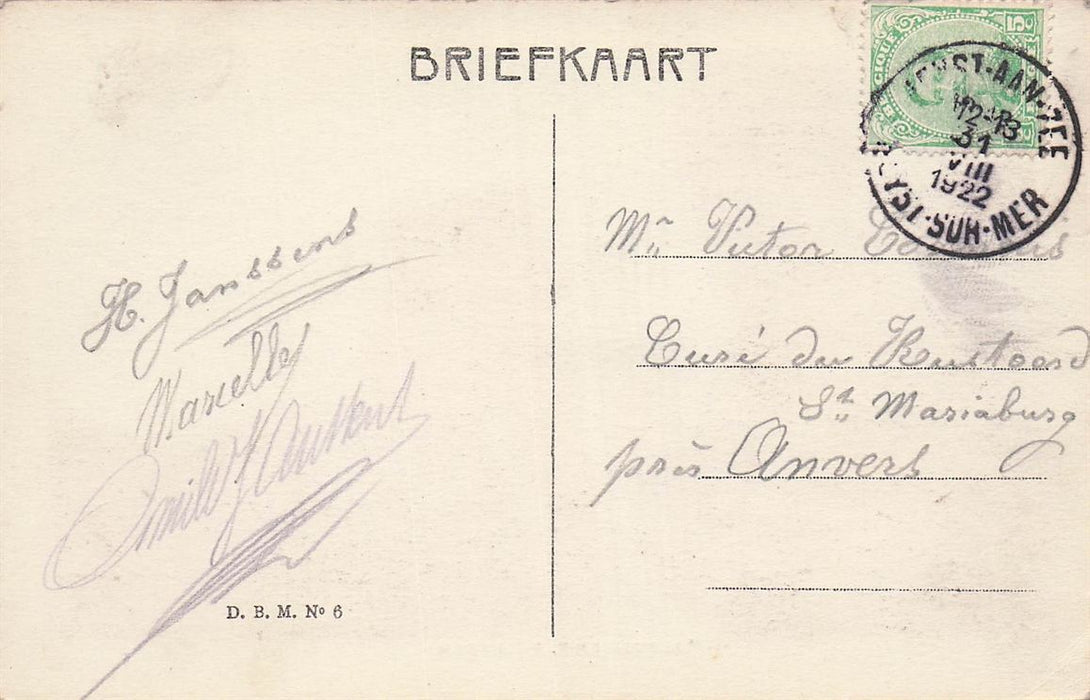 BRIEFKAART
5
HEYST-AAN-ZEE
12-13
31
VIII
1922
HEYST-SUR-MER
Mr Victor
Curé du
St. Mariaburg
près Anvers
H. Janssens
Marcelle
Emile Janssens
D. B. M. No 6